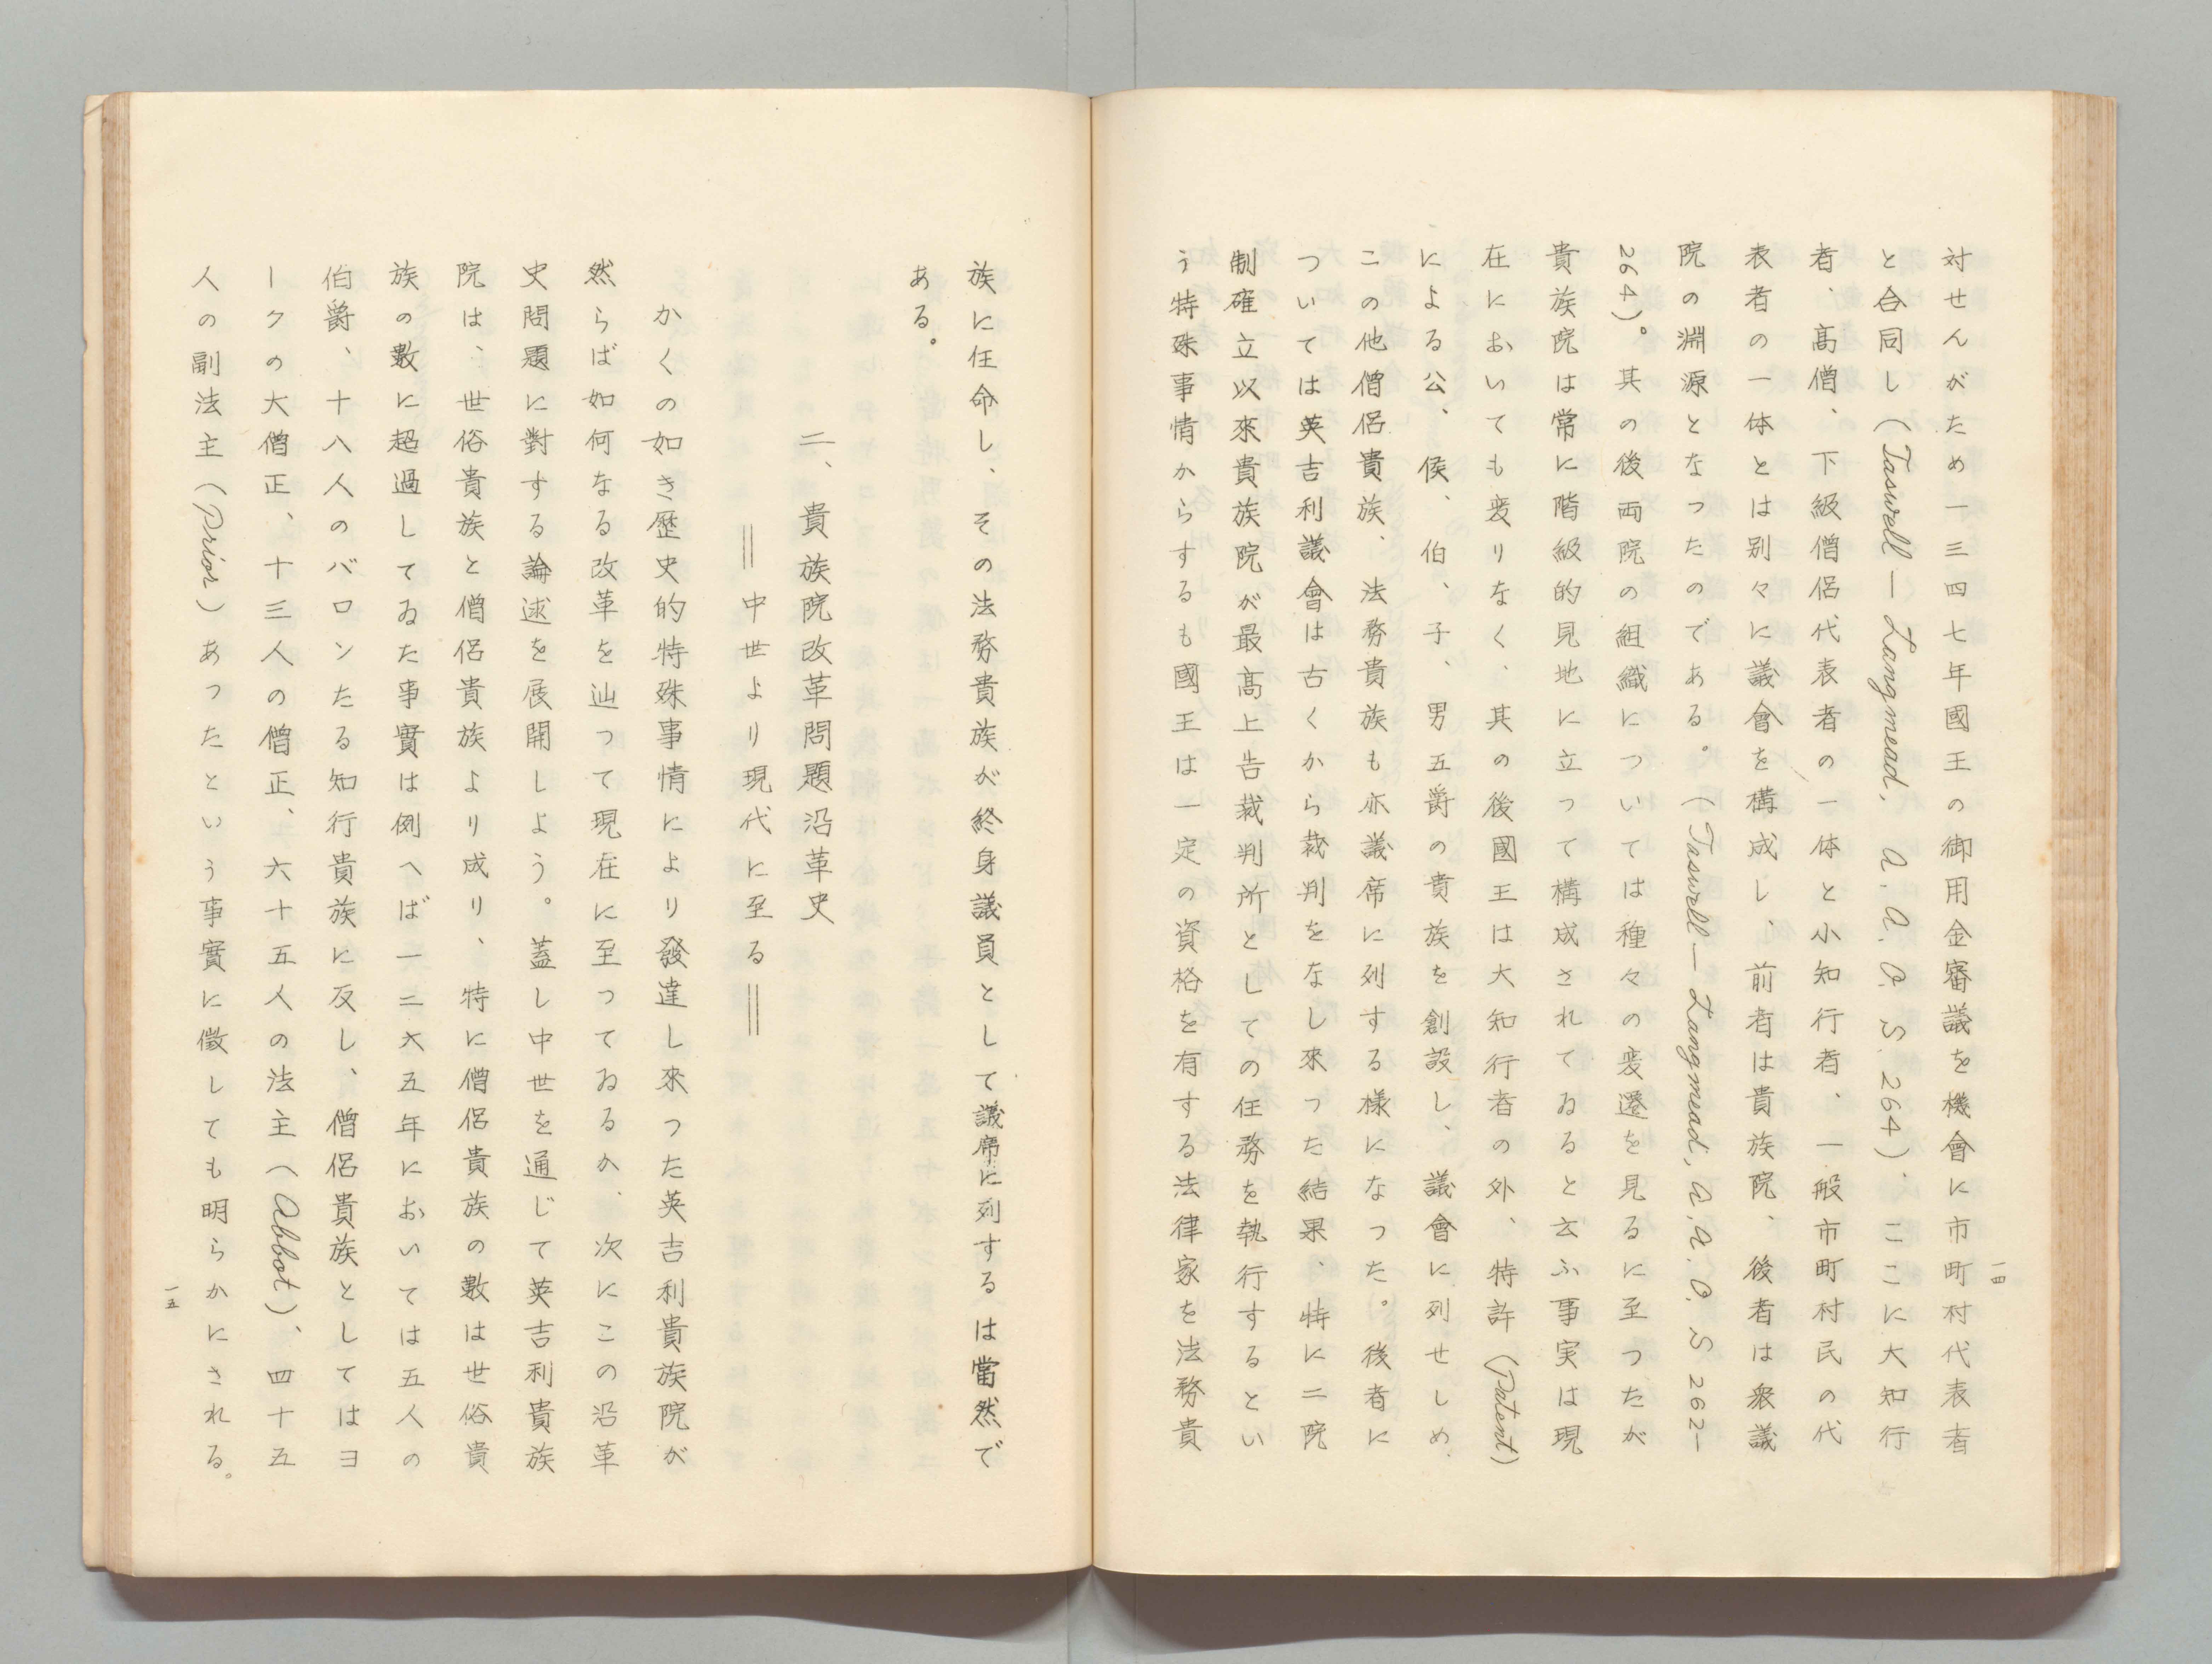 対せんがため一三四七年國王の御用金審議を機會に市町村代表者
と合同し（Taswell — Langmead, A. A. C. S. 264）、ここに大知行
者、高僧、下級僧侶代表者の一体と小知行者、一般市町村民の代
表者の一体とは別々に議會を構成し、前者は貴族院、後者は衆議
院の淵源となったのである。（Taswell — Langmead, A. A. C. S 262–
264）。其の後両院の組織については種々の変遷を見るに至つたが
貴族院は常に階級的見地に立って構成されてゐると云ふ事実は現
在においても変りなく、其の後國王は大知行者の外、特許（Patent）
による公、侯、伯、子、男五爵の貴族を創設し、議會に列せしめ、
この他僧侶貴族、法務貴族も亦議席に列する様になった。後者に
ついては英吉利議會は古くから裁判をなし來った結果、特に二院
制確立以來貴族院が最高上告裁判所としての任務を執行するとい
う特殊事情からするも國王は一定の資格を有する法律家を法務貴
一四
族に任命し、その法務貴族が終身議員として議席に列するは當然で
ある。
二、貴族院改革問題沿革史
＝中世より現代に至る＝
かくの如き歴史的特殊事情により發達し來つた英吉利貴族院が
然らば如何なる改革を辿って現在に至ってゐるか、次にこの沿革
史問題に對する論述を展開しよう。蓋し中世を通じて英吉利貴族
院は、世俗貴族と僧侶貴族より成り、特に僧侶貴族の數は世俗貴
族の數に超過してゐた事實は例へば一二六五年においては五人の
伯爵、十八人のバロンたる知行貴族に反し、僧侶貴族としてはヨ
ークの大僧正、十三人の僧正、六十五人の法主（Abbot）、四十五
人の副法主（Prior）あったという事實に徴しても明らかにされる。
一五